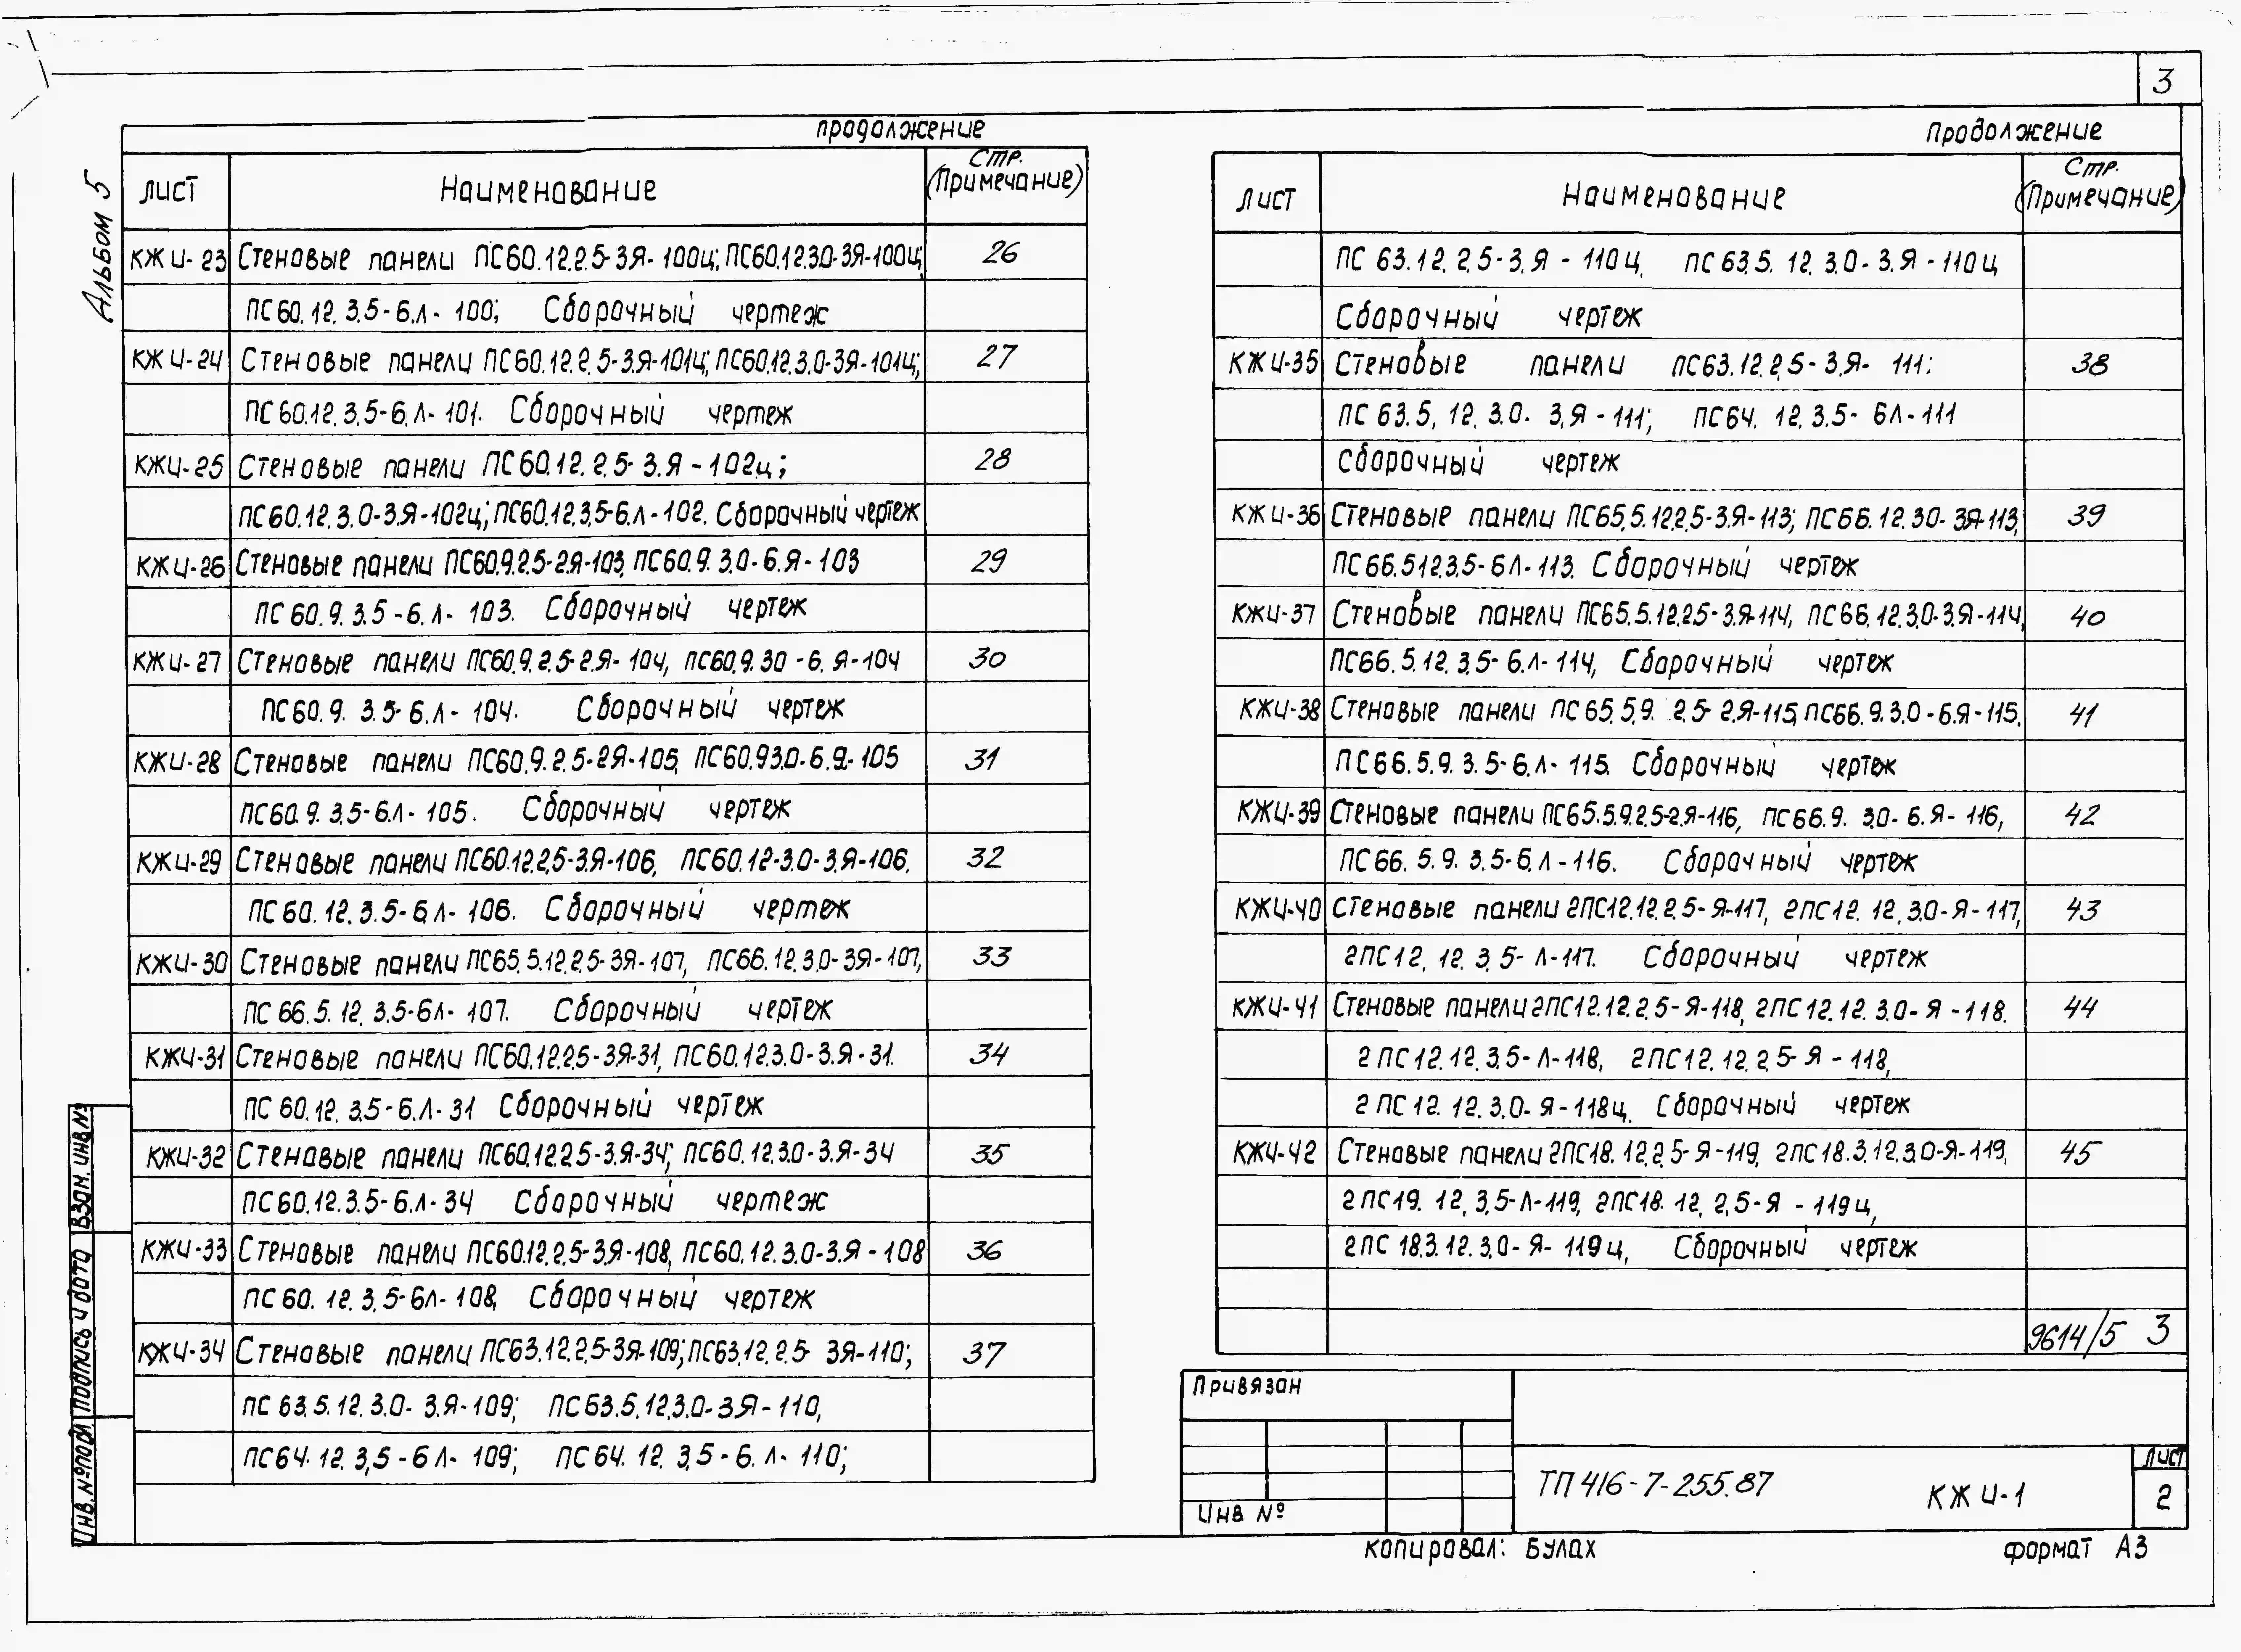 3
Альбом 5
продолжение
лист Наименование Стр. (Примечание)
КЖИ-23 Стеновые панели ПС60.12.2.5-3Я-100ц; ПС60.12.3.0-3Я-100ц; 26
ПС60.12.3.5-6.Л-100; Сборочный чертеж
КЖИ-24 Стеновые панели ПС60.12.2.5-3.Я-101ц; ПС60.12.3.0-3Я-101ц; 27
ПС60.12.3.5-6.Л-101. Сборочный чертеж
КЖИ-25 Стеновые панели ПС60.12.2.5-3.Я-102ц; 28
ПС60.12.3.0-3.Я-102ц; ПС60.12.3.5-6.Л-102. Сборочный чертеж
КЖИ-26 Стеновые панели ПС60.9.2.5-2.Я-103, ПС60.9.3.0-6.Я-103 29
ПС60.9.3.5-6.Л-103. Сборочный чертеж
КЖИ-27 Стеновые панели ПС60.9.2.5-2.Я-104, ПС60.9.30-6.Я-104 30
ПС60.9.3.5-6.Л-104. Сборочный чертеж
КЖИ-28 Стеновые панели ПС60.9.2.5-2Я-105, ПС60.93.0-6.Я-105 31
ПС60.9.3.5-6.Л-105. Сборочный чертеж
КЖИ-29 Стеновые панели ПС60.12.2.5-3.Я-106, ПС60.12-3.0-3.Я-106. 32
ПС60.12.3.5-6.Л-106. Сборочный чертеж
КЖИ-30 Стеновые панели ПС65.5.12.2.5-3Я-107, ПС66.12.3.0-3Я-107, 33
ПС66.5.12.3.5-6Л-107. Сборочный чертеж
КЖИ-31 Стеновые панели ПС60.12.2.5-3.Я-31, ПС60.12.3.0-3.Я-31. 34
ПС60.12.3.5-6.Л-31 Сборочный чертеж
КЖИ-32 Стеновые панели ПС60.12.2.5-3.Я-34; ПС60.12.3.0-3.Я-34 35
ПС60.12.3.5-6.Л-34 Сборочный чертеж
КЖИ-33 Стеновые панели ПС60.12.2.5-3.Я-108, ПС60.12.3.0-3.Я-108 36
ПС60.12.3.5-6Л-108, Сборочный чертеж
КЖИ-34 Стеновые панели ПС63.12.2.5-3Я-109; ПС63.12.2.5-3Я-110; 37
ПС63.5.12.3.0-3.Я-109; ПС63.5.12.3.0-3Я-110,
ПС64.12.3,5-6Л-109; ПС64.12.3,5-6.Л-110;
Продолжение
лист Наименование Стр. (Примечание)
ПС63.12.2.5-3.Я-110ц, ПС63.5.12.3.0-3.Я-110ц
Сборочный чертеж
КЖИ-35 Стеновые панели ПС63.12.2,5-3.Я-111; 38
ПС63.5,12.3.0-3,Я-111; ПС64.12.3.5-6Л-111
Сборочный чертеж
КЖИ-36 Стеновые панели ПС65.5.12.2.5-3.Я-113; ПС66.12.30-3Я-113, 39
ПС66.5.12.3.5-6Л-113. Сборочный чертеж
КЖИ-37 Стеновые панели ПС65.5.12.2.5-3.Я-114, ПС66.12.3.0-3.Я-114, 40
ПС66.5.12.3.5-6.Л-114, Сборочный чертеж
КЖИ-38 Стеновые панели ПС65.5.9.2.5-2.Я-115, ПС66.9.3.0-6.Я-115. 41
ПС66.5.9.3.5-6.Л-115. Сборочный чертеж
КЖИ-39 Стеновые панели ПС65.5.9.2.5-2.Я-116, ПС66.9.3.0-6.Я-116, 42
ПС66.5.9.3.5-6.Л-116. Сборочный чертеж
КЖИ-40 Стеновые панели 2ПС12.12.2.5-Я-117, 2ПС12.12.3.0-Я-117, 43
2ПС12.12.3.5-Л-117. Сборочный чертеж
КЖИ-41 Стеновые панели 2ПС12.12.2.5-Я-118, 2ПС12.12.3.0-Я-118. 44
2ПС12.12.3.5-Л-118, 2ПС12.12.2.5-Я-118,
2ПС12.12.3.0-Я-118ц. Сборочный чертеж
КЖИ-42 Стеновые панели 2ПС18.12.2.5-Я-119, 2ПС18.3.12.3.0-Я-119, 45
2ПС19.12,3,5-Л-119, 2ПС18.12,2,5-Я-119ц,
2ПС18.3.12.3.0-Я-119ц, Сборочный чертеж
9614/5 3
Привязан
Инв №
ТП 416-7-255.87 КЖИ-1
Лист
2
Инв.№подл. Подпись и дата Взам.инв.№
копировал: Булах формат А3